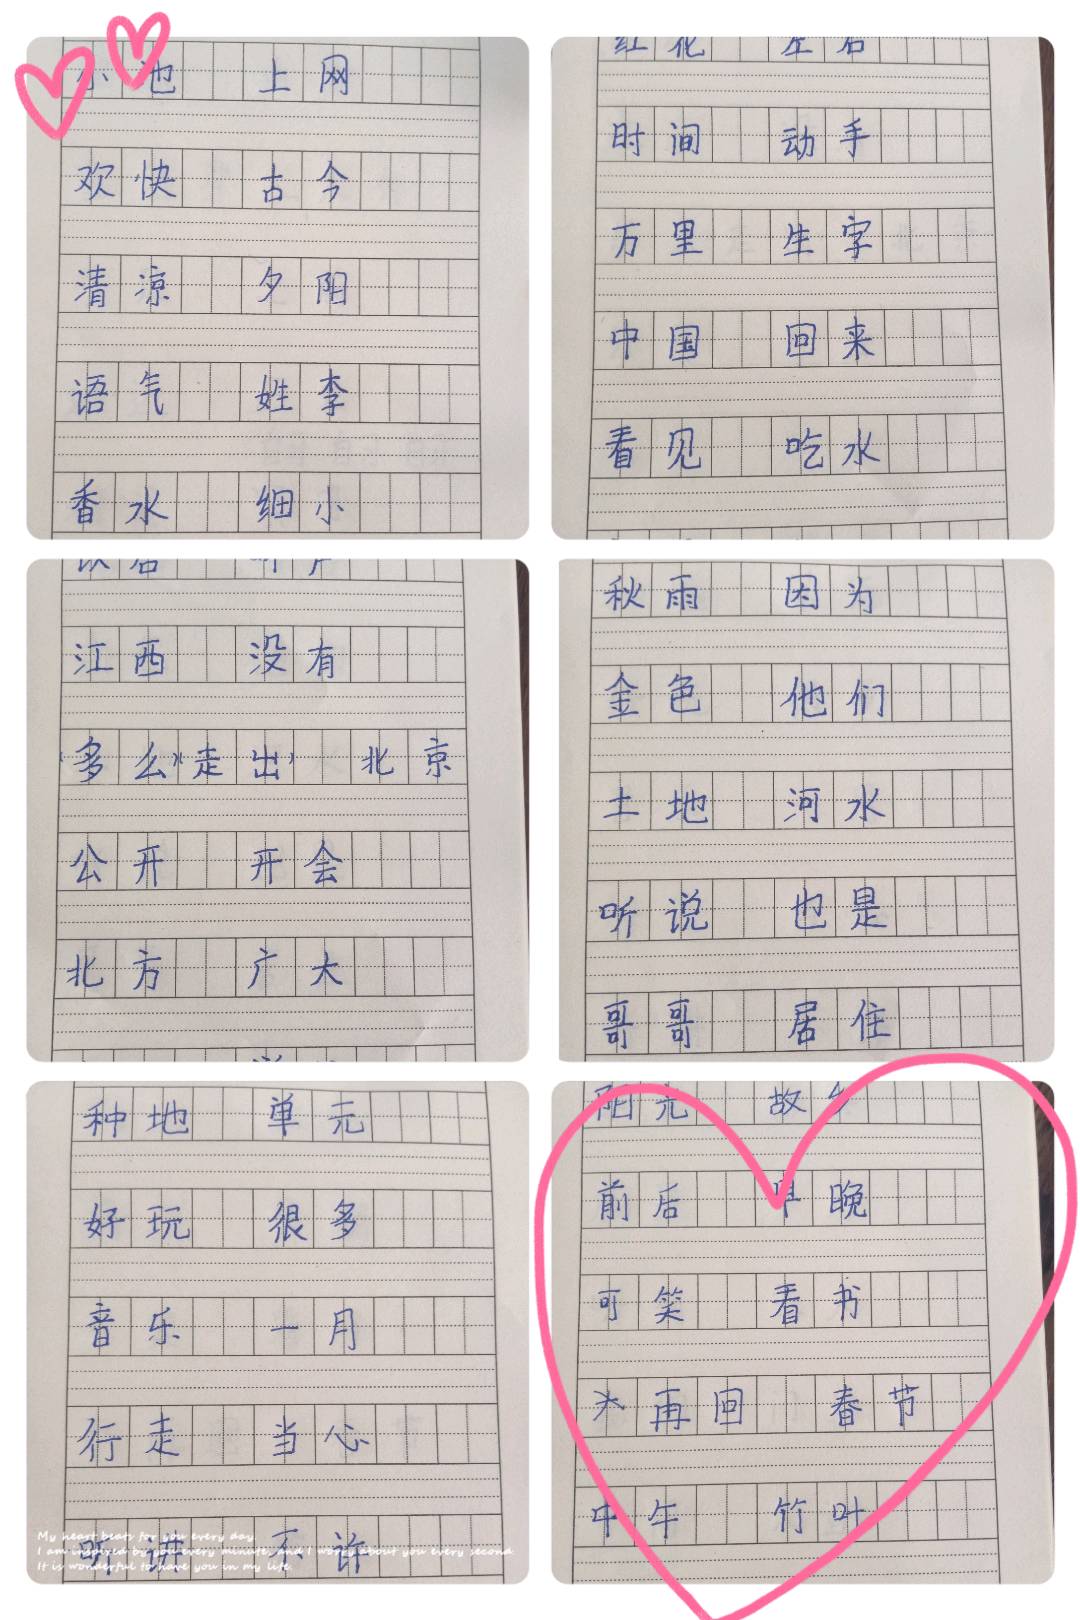 小池 上网
欢快 古今
清凉 夕阳
语气 姓李
香水 细小
红花 左右
时间 动手
万里 生字
中国 回来
看见 吃水
江西 没有
多么 走出 北京
公开 开会
北方 广大
秋雨 因为
金色 他们
土地 河水
听说 也是
哥哥 居住
种地 单元
好玩 很多
音乐 一月
行走 当心
听讲 不许
My heart beats for you every day.
I am inspired by you every minute, and I worry about you every second.
It is wonderful to have you in my life.
阳光 故乡
前后 早晚
可笑 看书
再回 春节
中午 竹叶